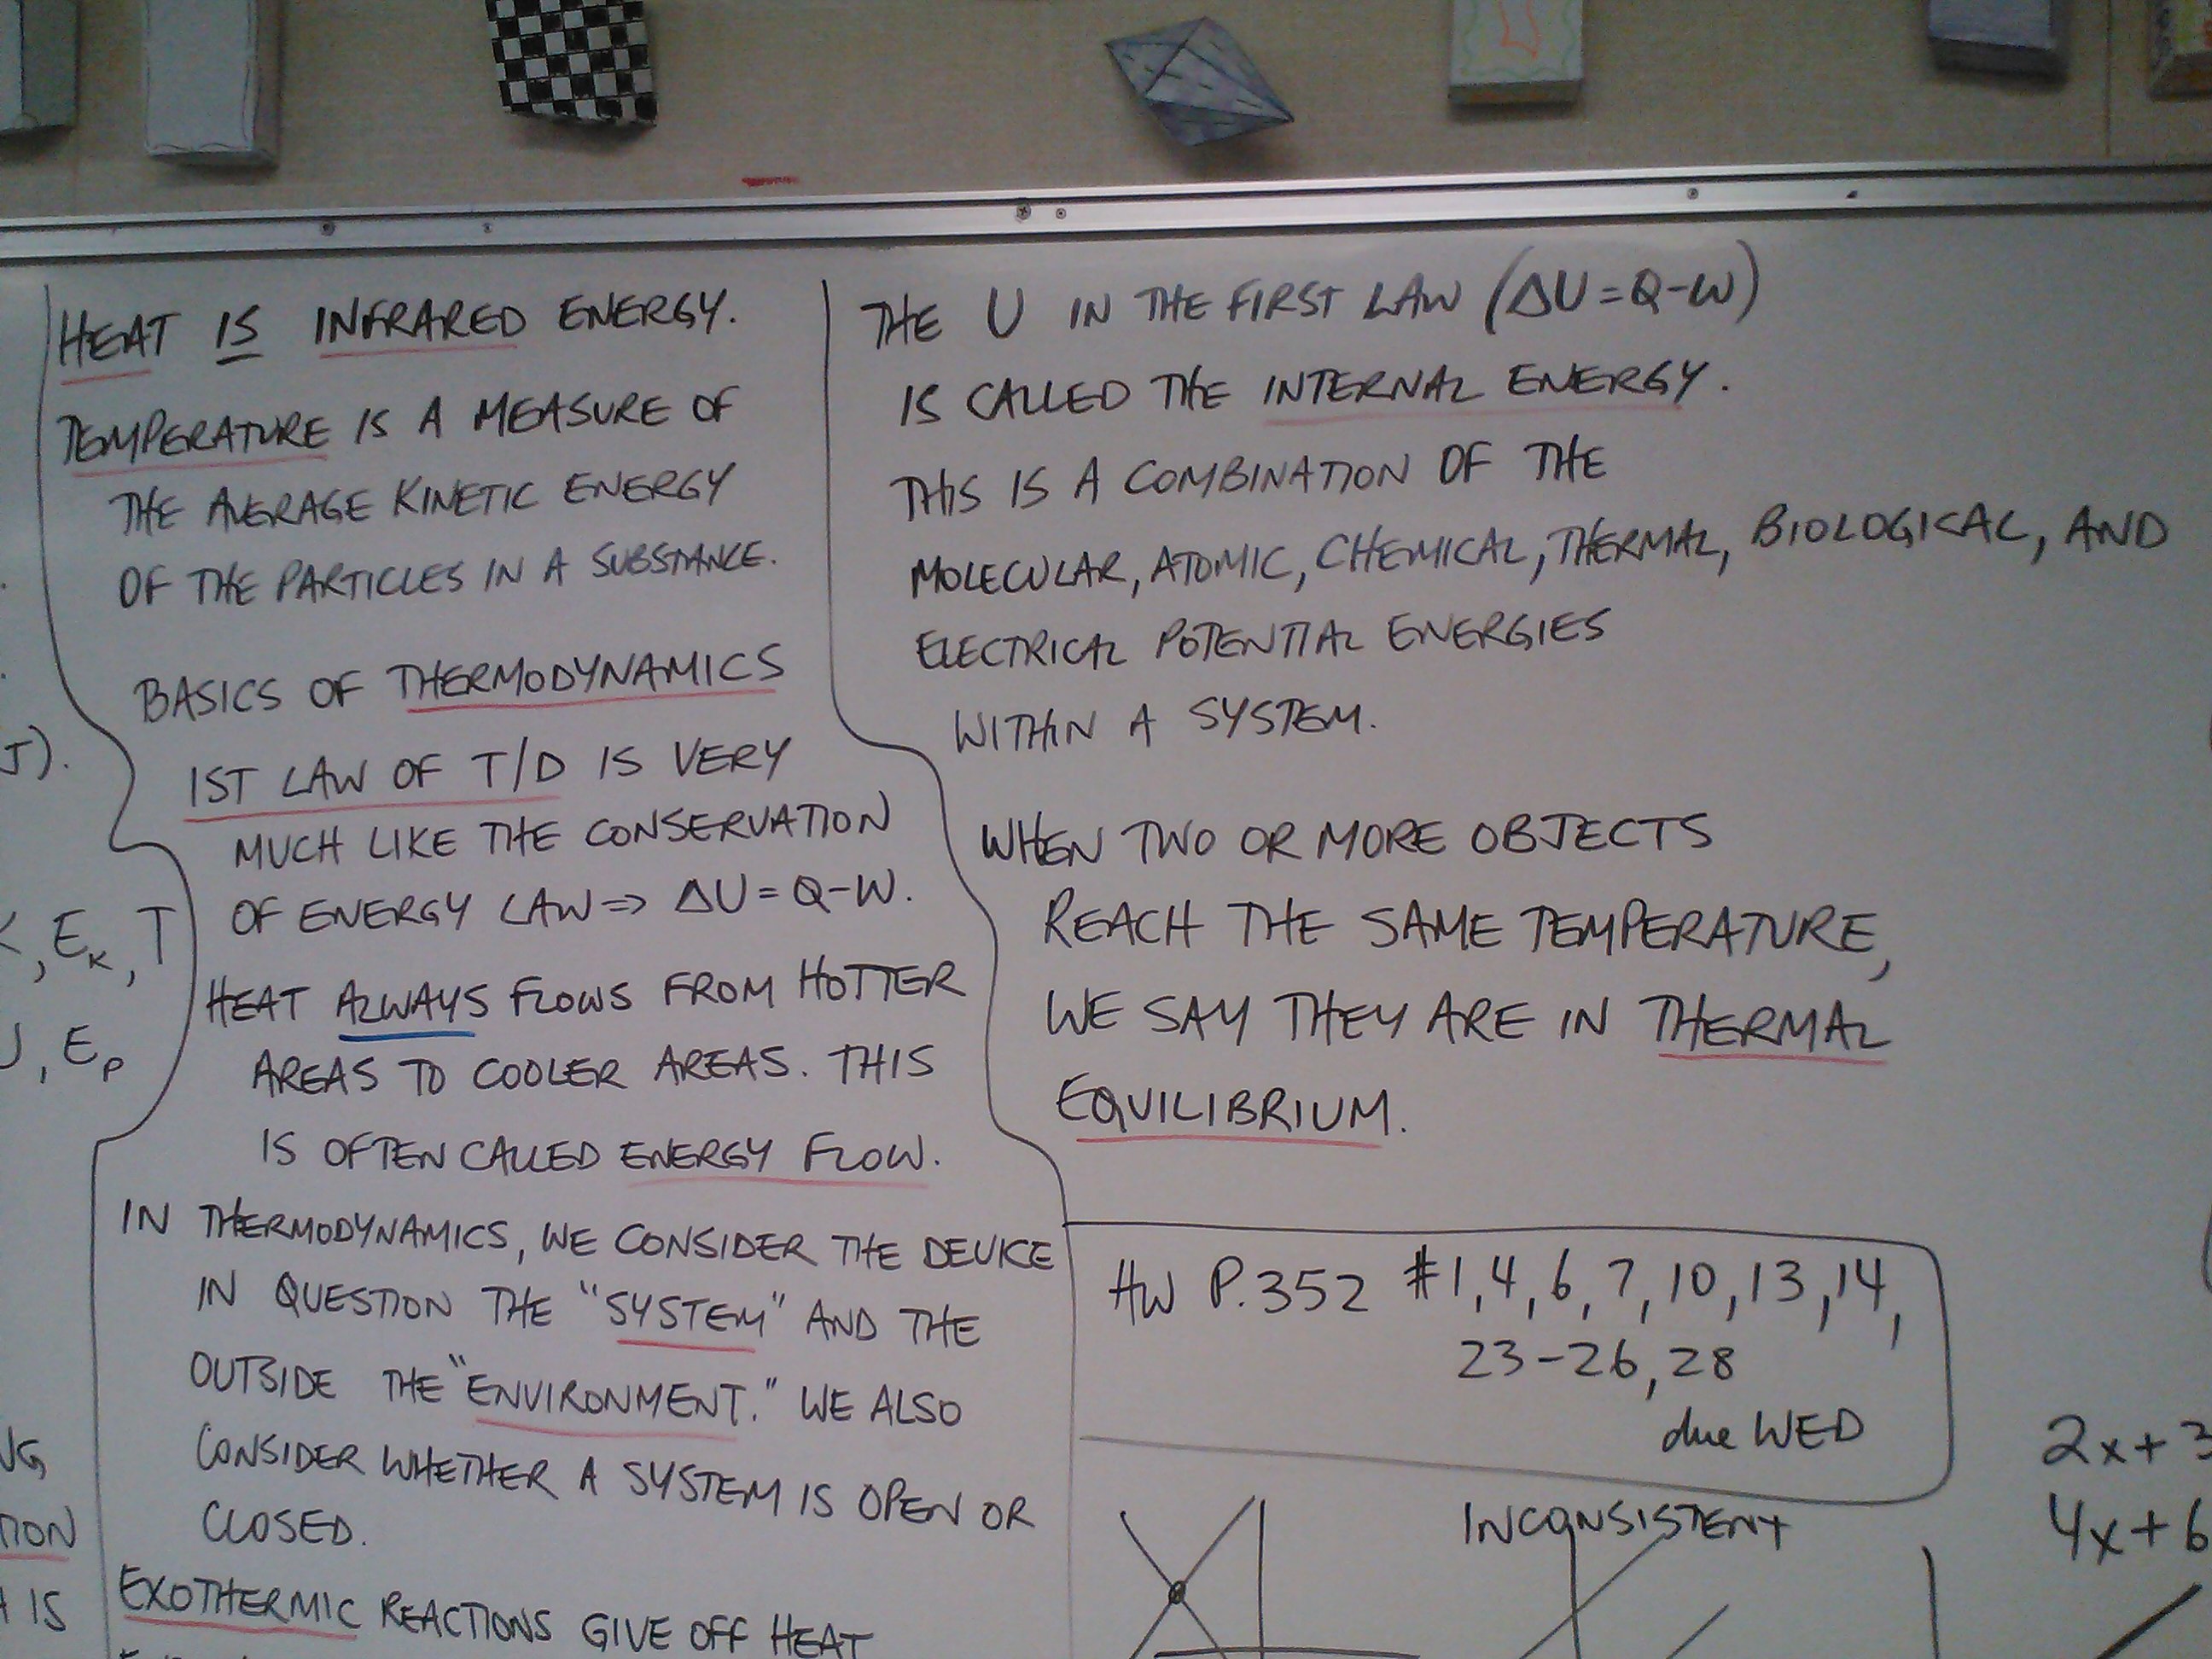 J).
, Ek, T
, Ep
TION
IS
HEAT IS INFRARED ENERGY.
TEMPERATURE IS A MEASURE OF
THE AVERAGE KINETIC ENERGY
OF THE PARTICLES IN A SUBSTANCE.
BASICS OF THERMODYNAMICS
1ST LAW OF T/D IS VERY
MUCH LIKE THE CONSERVATION
OF ENERGY LAW => ΔU = Q-W.
HEAT ALWAYS FLOWS FROM HOTTER
AREAS TO COOLER AREAS. THIS
IS OFTEN CALLED ENERGY FLOW.
IN THERMODYNAMICS, WE CONSIDER THE DEVICE
IN QUESTION THE "SYSTEM" AND THE
OUTSIDE THE "ENVIRONMENT." WE ALSO
CONSIDER WHETHER A SYSTEM IS OPEN OR
CLOSED.
EXOTHERMIC REACTIONS GIVE OFF HEAT
THE U IN THE FIRST LAW (ΔU = Q-W)
IS CALLED THE INTERNAL ENERGY.
THIS IS A COMBINATION OF THE
MOLECULAR, ATOMIC, CHEMICAL, THERMAL, BIOLOGICAL, AND
ELECTRICAL POTENTIAL ENERGIES
WITHIN A SYSTEM.
WHEN TWO OR MORE OBJECTS
REACH THE SAME TEMPERATURE,
WE SAY THEY ARE IN THERMAL
EQUILIBRIUM.
HW P.352 #1,4,6,7,10,13,14,
23-26,28
due WED
INCONSISTENT
2x+3
4x+6